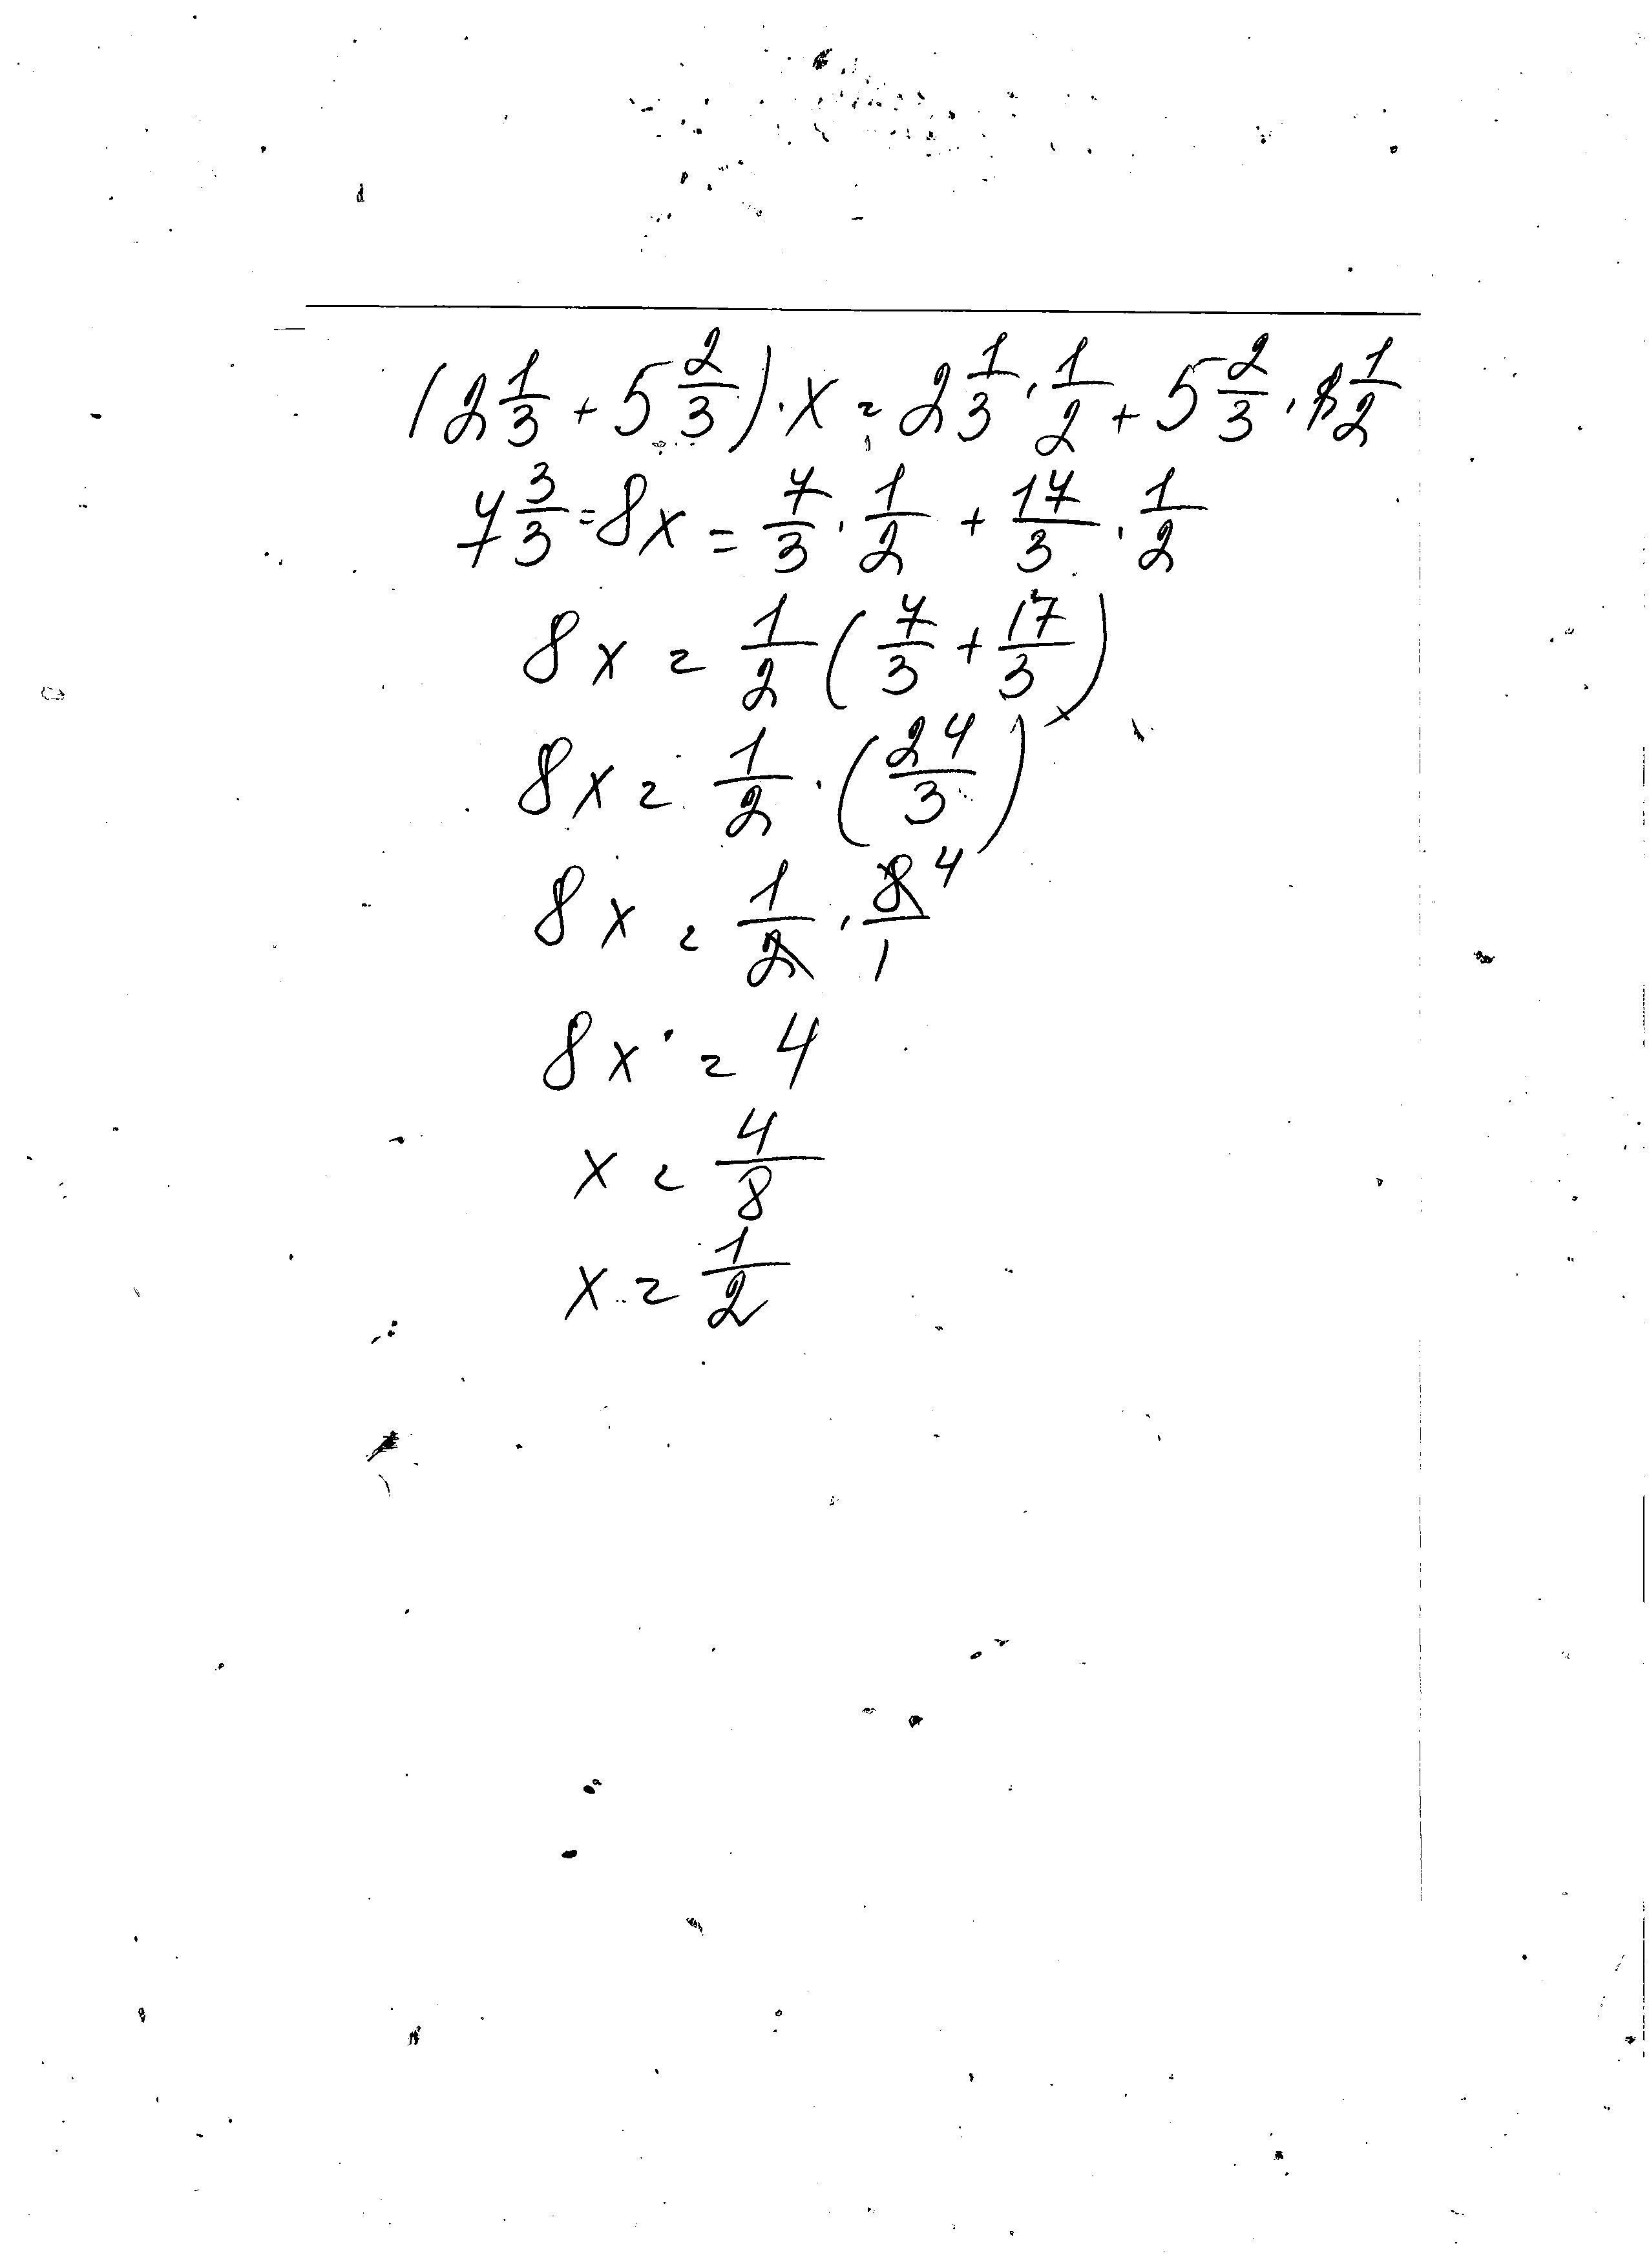 (2 1/3 + 5 2/3) · x = 2 1/3 · 1/2 + 5 2/3 · 1/2
7 3/3 = 8x = 7/3 · 1/2 + 17/3 · 1/2
8x = 1/2 (7/3 + 17/3)
8x = 1/2 · (24/3)
8x = 1/2 · 8/1 4
8x = 4
x = 4/8
x = 1/2